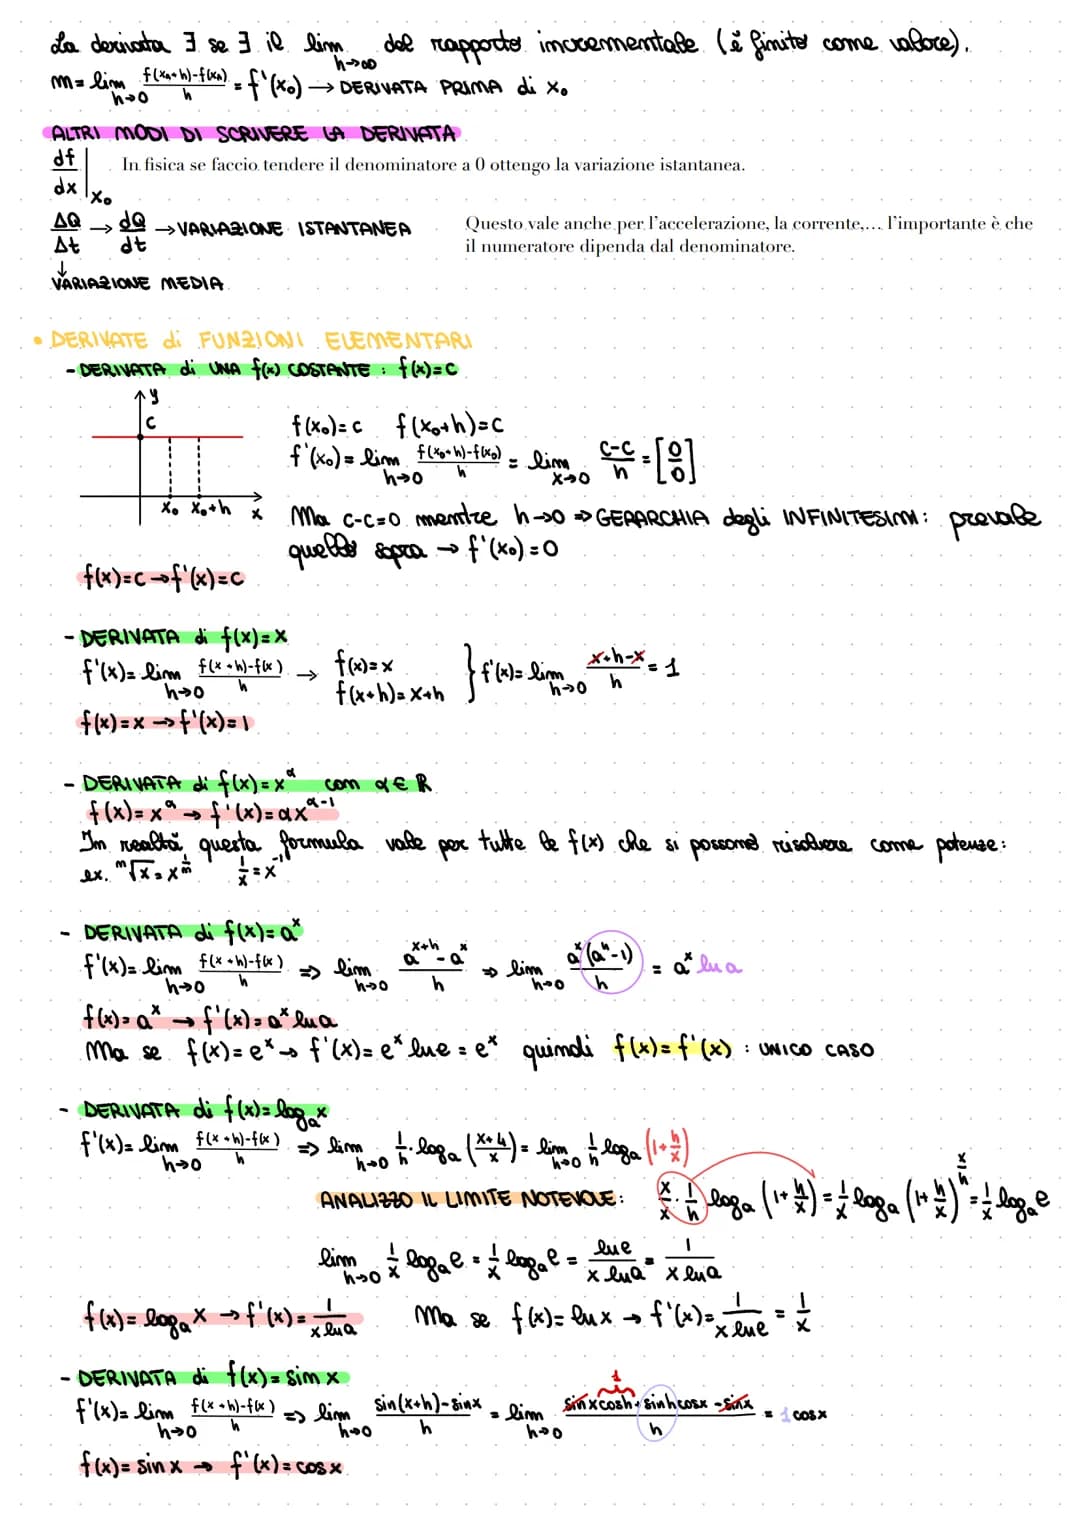 La derivata ∃ se ∃ il lim h→∞ del rapporto incrementale (è finito come valore).
m = lim h→0 f(x₀+h)-f(x₀) / h = f'(x₀) → DERIVATA PRIMA di x₀
ALTRI MODI DI SCRIVERE LA DERIVATA
df/dx |x₀ In fisica se faccio tendere il denominatore a 0 ottengo la variazione istantanea.
ΔQ/Δt → dQ/dt → VARIAZIONE ISTANTANEA
Questo vale anche per l'accelerazione, la corrente,... l'importante è che
il numeratore dipenda dal denominatore.
↓
VARIAZIONE MEDIA
• DERIVATE di FUNZIONI ELEMENTARI
- DERIVATA di UNA f(x) COSTANTE : f(x)=c
y
c
x₀ x₀+h x
f(x₀)=c f(x₀+h)=c
f'(x₀) = lim h→0 f(x₀+h)-f(x₀) / h = lim x→0 c-c / h = [0/0]
Ma c-c=0 mentre h→0 ⇒ GERARCHIA degli INFINITESIMI: prevale
quello sopra → f'(x₀)=0
f(x)=c → f'(x)=c
- DERIVATA di f(x)=x
f'(x) = lim h→0 f(x+h)-f(x) / h → f(x)=x f(x+h)=x+h } f'(x) = lim h→0 x+h-x / h = 1
f(x)=x → f'(x)=1
- DERIVATA di f(x)=x^α con α∈R
f(x)=x^α → f'(x)=αx^(α-1)
In realtà questa formula vale per tutte le f(x) che si possono risolvere come potenze:
ex. ᵐ√x = x^(1/m) 1/x = x⁻¹
- DERIVATA di f(x)=a^x
f'(x) = lim h→0 f(x+h)-f(x) / h ⇒ lim h→0 a^(x+h) - a^x / h ⇒ lim h→0 a^x(a^h-1) / h = a^x ln a
f(x)=a^x → f'(x)=a^x ln a
Ma se f(x)=e^x → f'(x)=e^x ln e = e^x quindi f(x)=f'(x) : UNICO CASO
- DERIVATA di f(x)=logₐx
f'(x) = lim h→0 f(x+h)-f(x) / h ⇒ lim h→0 1/h · logₐ (x+h / x) = lim h→0 1/h logₐ (1+h/x)
ANALIZZO IL LIMITE NOTEVOLE: x/x · 1/h logₐ (1+h/x) = 1/x logₐ (1+h/x)^(x/h) = 1/x logₐe
lim h→0 1/x logₐe = 1/x logₐe = ln e / x ln a = 1 / x ln a
f(x)=logₐx → f'(x) = 1 / x ln a Ma se f(x)=ln x → f'(x) = 1 / x ln e = 1/x
- DERIVATA di f(x)=sin x
1
f'(x) = lim h→0 f(x+h)-f(x) / h ⇒ lim h→0 sin(x+h)-sinx / h = lim h→0 sinxcosh+sinhcosx-sinx / h = 1 cosx
f(x)=sin x → f'(x)=cosx